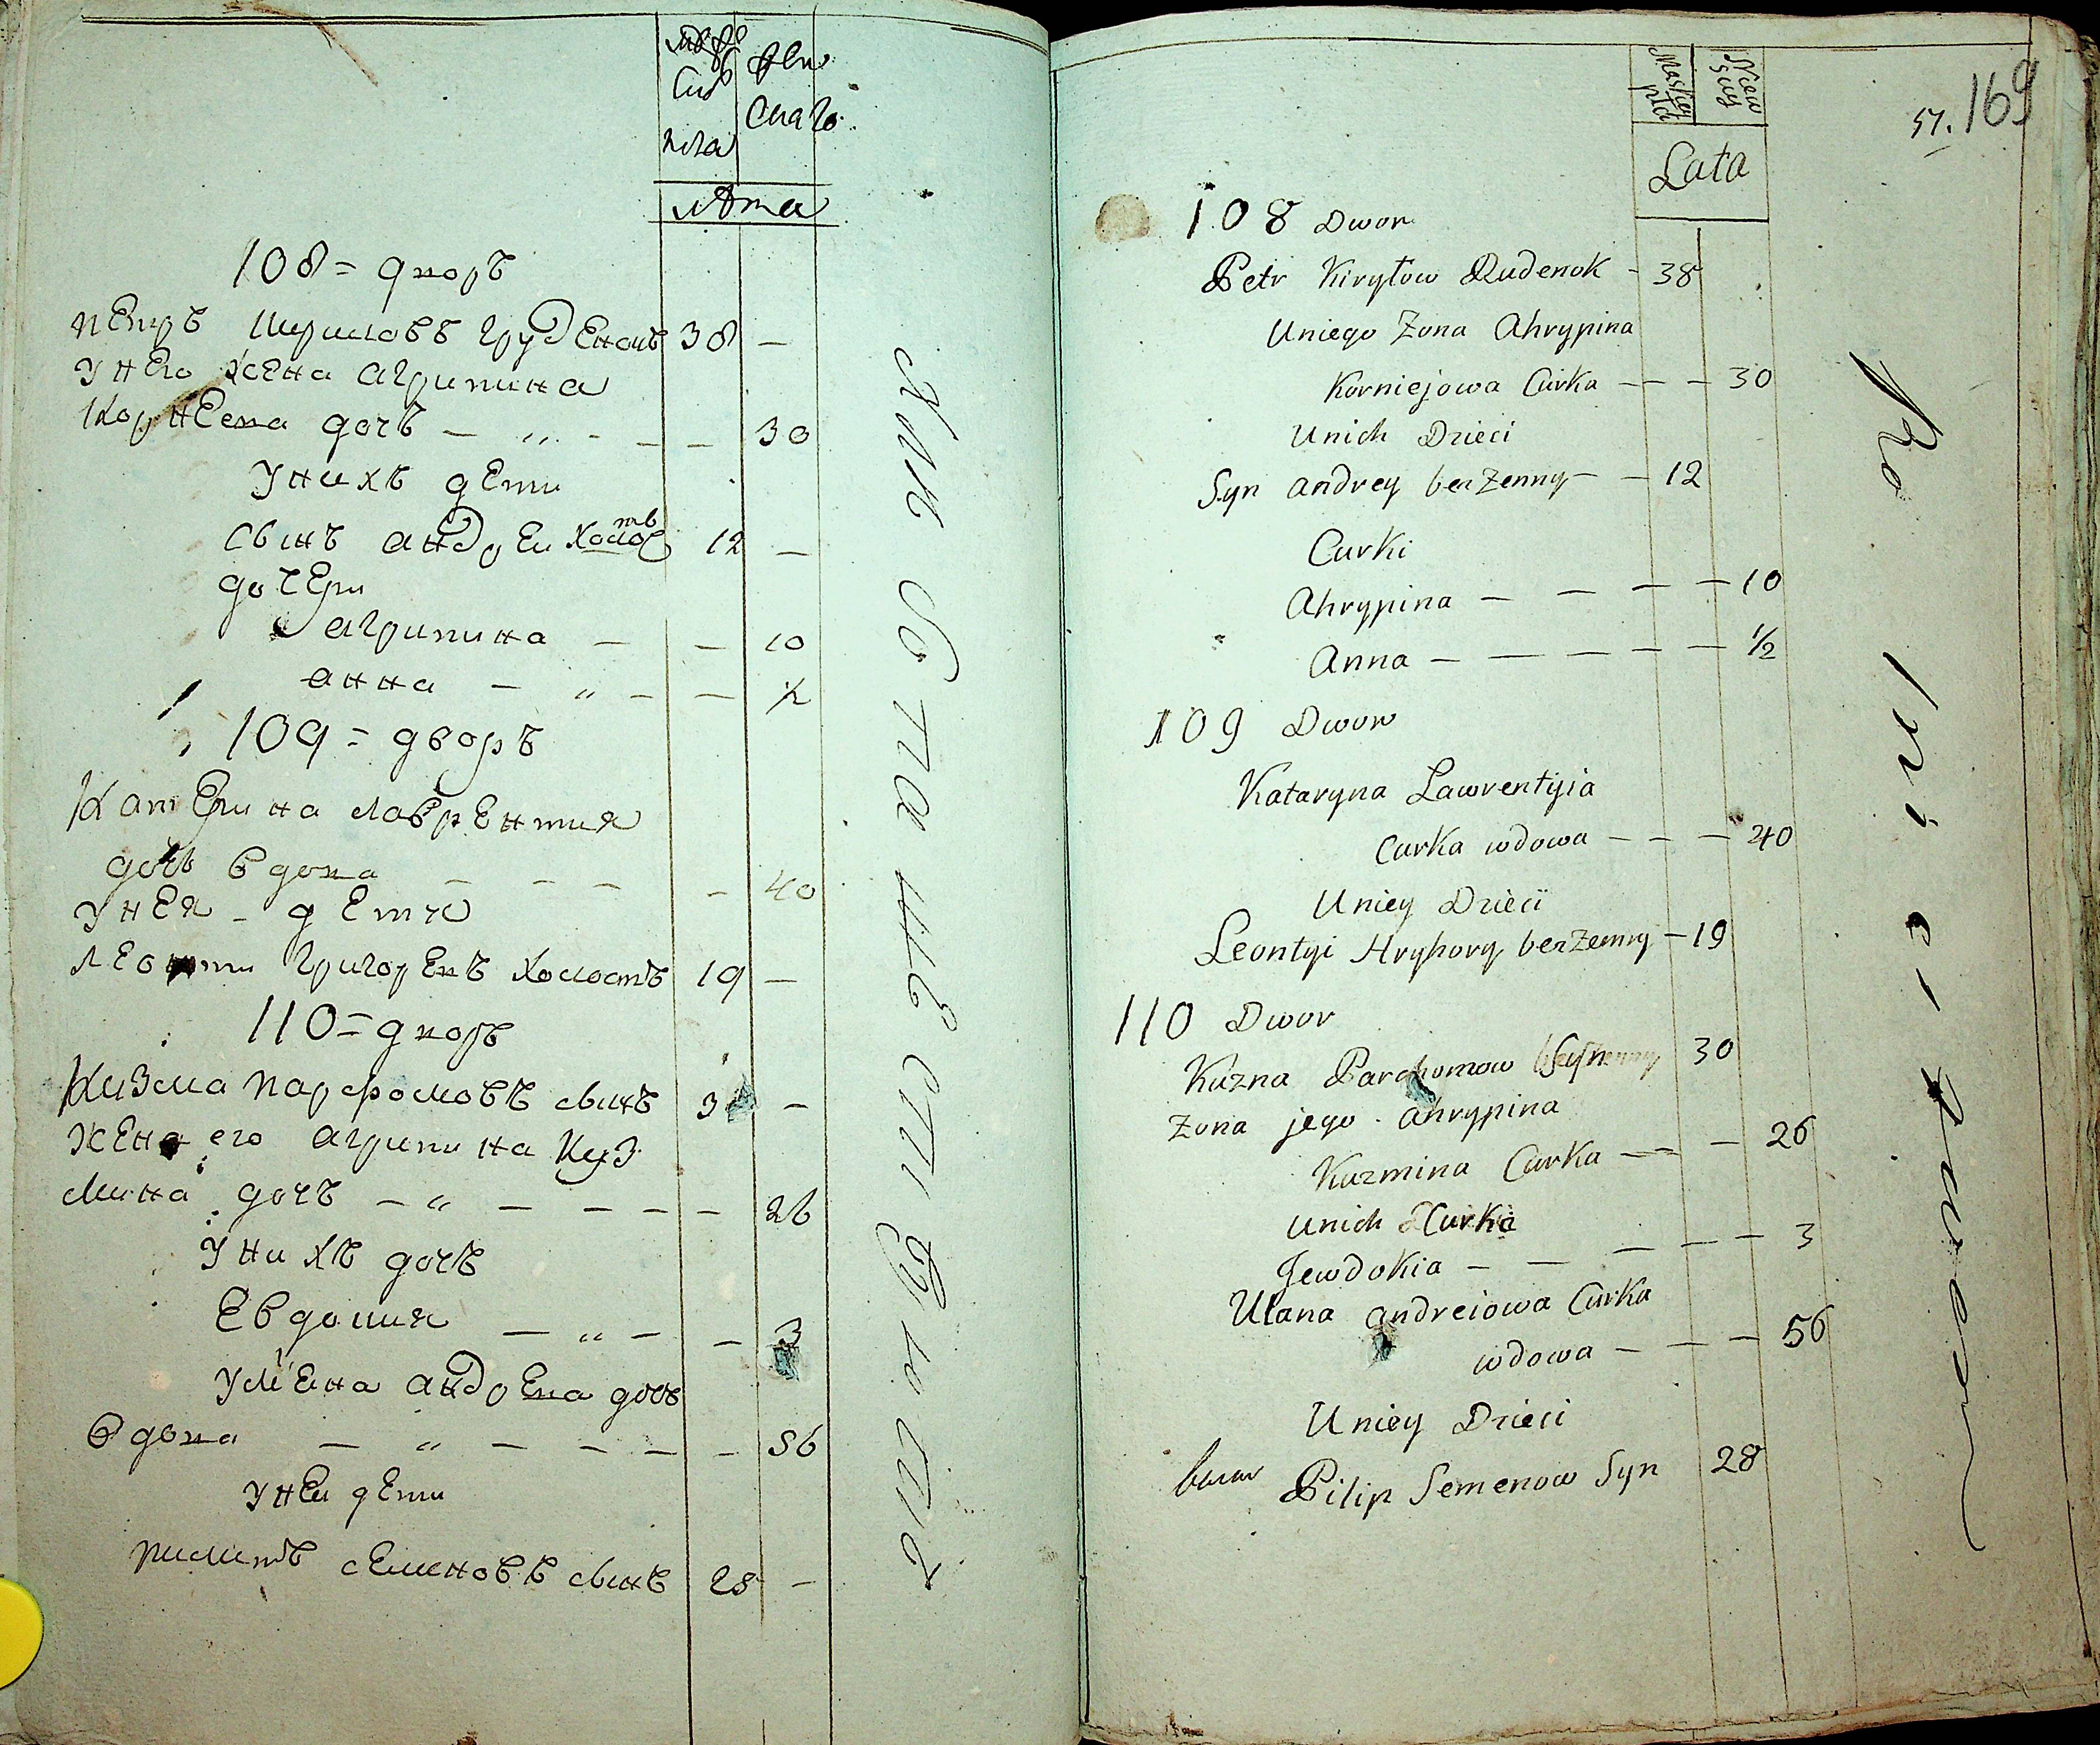 Лата
108 = дворъ
Петръ Кириловъ Груденокъ 38 —
У него жена Агрипина
Корнеева дочъ — „ - — — 30
У нихъ дети
Сынъ Андреи холостъ 12 —
дочери
Агрипина — — 10
Анна — „ — — 1/2
109 = дворъ
Катерина Лаврентия
дочъ вдова — — — — 40
У нея - дети
Леонти Григоревъ холостъ 19 —
110 = дворъ
Кизма Парфомовъ сынъ 3 —
Жена его Агрипина Куз
мина дочъ — „ — — — — 26
У нихъ дочъ
Евдокия — „ — — 3
Улiена Андрева дочъ
вдова — „ — — — — 56
У неи дети
Пилипъ Семеновъ сынъ 28 —
51. 169
Lata
108 Dwor
Petr Kiryłow Rudenok - 38
Uniego Zona Ahrypina
Korniejowa Curka — — — 30
Unich Dzieci
Syn Andrey bezZenny — — 12
Curki
Ahrypina — — — — 10
Anna — — — — — — 1/2
109 Dwor
Kataryna Lawrentyia
Curka wdowa — — — 40
Uniey Dzieci
Leontyi Hryhory bezZenny — 19
110 Dwor
Kuzna Parchomow Syn 30
Zona jego Ahrypina
Kuzmina Curka — — — 26
Unich Curka
Jewdokia — — — — — 3
Ulana Andreiowa Curka
wdowa — — — 56
Uniey Dzieci
Pilip Semenow Syn 28